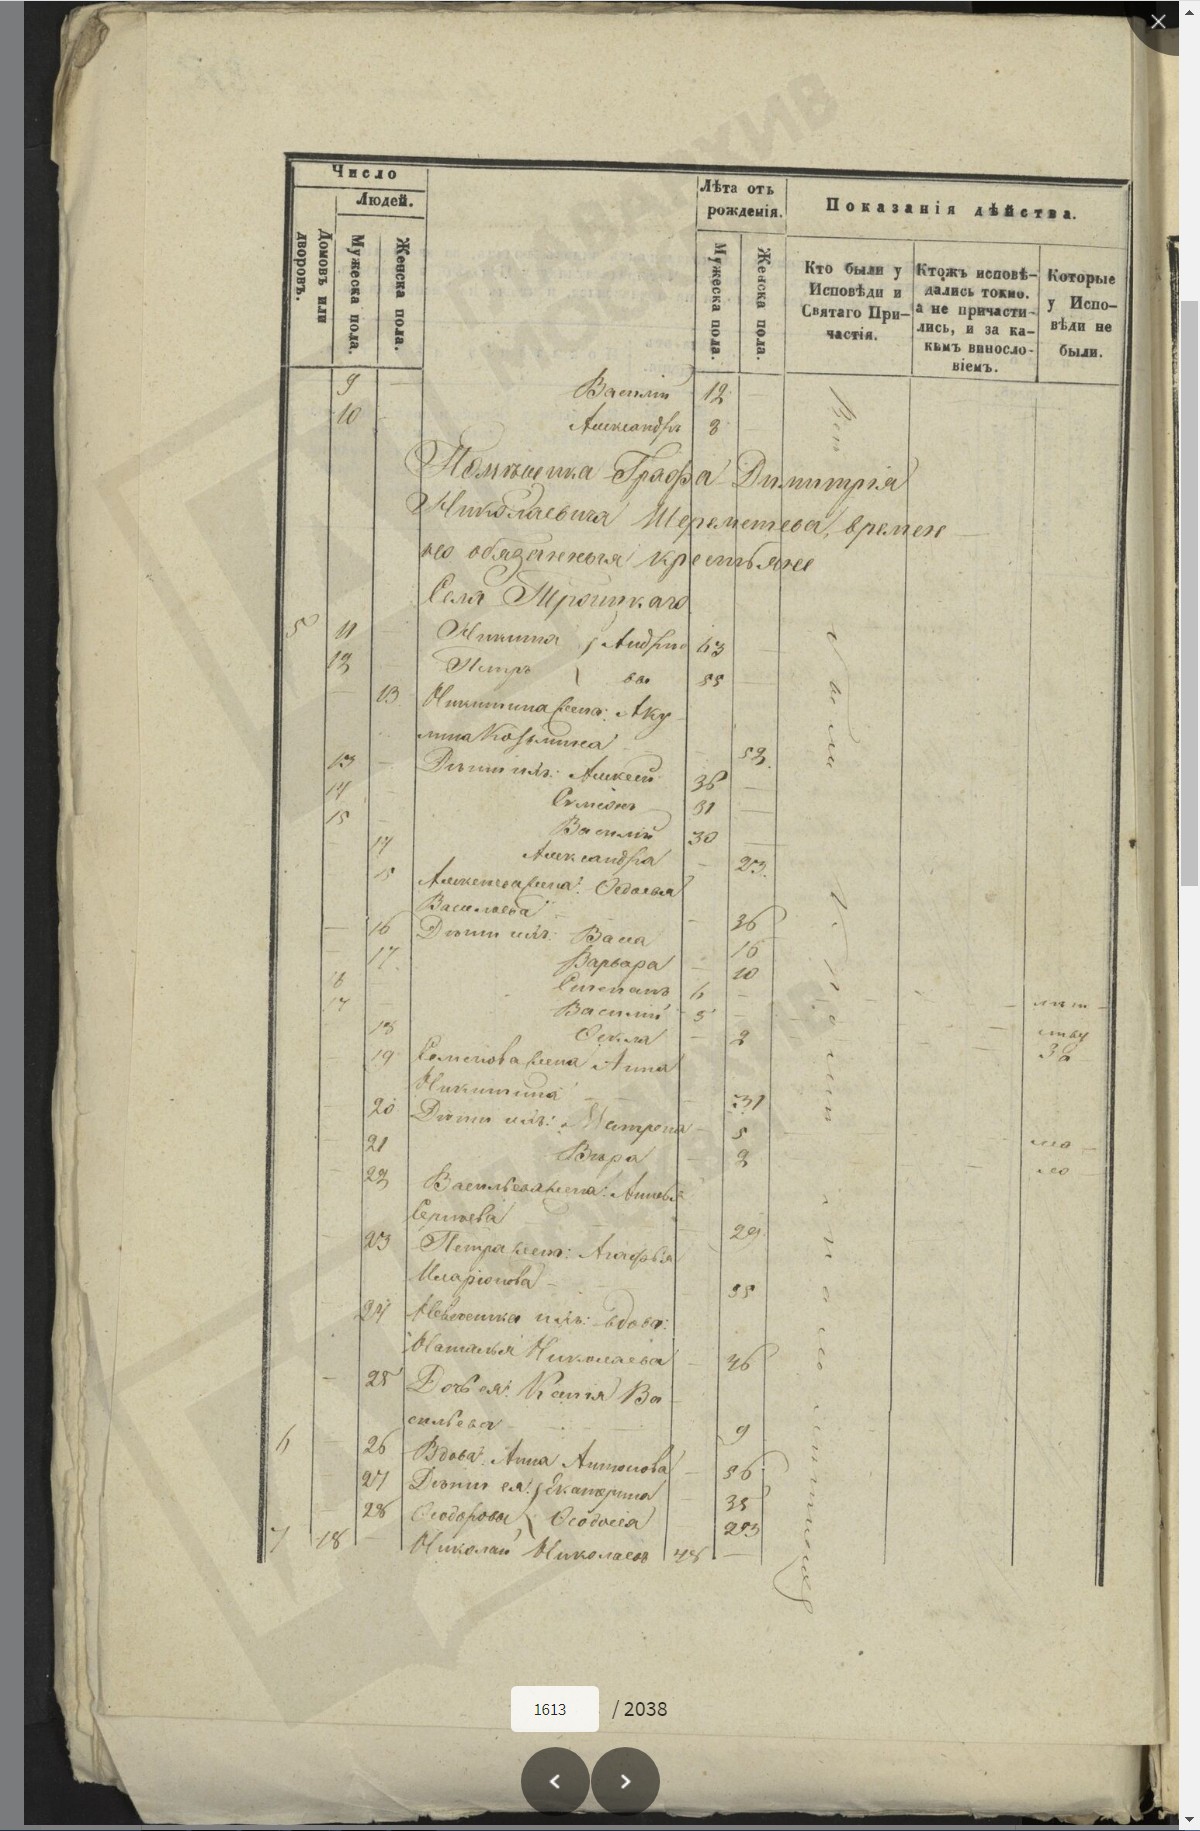 Число
Людей.
Домовъ или дворовъ.
Мужеска пола.
Женска пола.
Лѣта отъ рожденія.
Мужеска пола.
Женска пола.
Показанія дѣйства.
Кто были у Исповѣди и Святаго При-частія.
Ктожъ исповѣ-дались токмо. а не причасти-лись, и за ка-кимъ винosло-віемъ.
Которые у Испо-вѣди не были.
9 Василій 12
10 Александръ 8
Помѣщика Графа Димитрія
Николаевича Шереметева, времен
но обязанныя крестьяне
Села Троицкаго
5 11 Никита Андрее 63
12 Петръ вы 55
13 Никитина жена: Аку
лина Козьмина 52
13 Дѣти ихъ: Алексей 36
14 Семіонъ 31
15 Василій 30
14 Александра 23
15 Алексеева жена: Федосья
Васильева 36
16 Дѣти ихъ: Васса 16
17 Варвара 10
16 Степанъ 6
17 Василій 5
18 Фекла 2
19 Семенова жена Анна
Никитина 31
20 Дѣти ихъ: Матрена 5
21 Вѣра 2
22 Васильева жена:
Сергеева 29
23 Петра жена: Агафья
Иларіонова 55
24 Невестка ихъ: вдова:
Наталья Николаева 46
25 Дочь ея: Ксенія Ва
сильева 9
6 26 Вдова: Анна Антонова 56
27 Дѣти ея: Екатерина 35
28 Феодоровы Феодосія 23
7 18 Николай Николаевъ 48
1613 / 2038